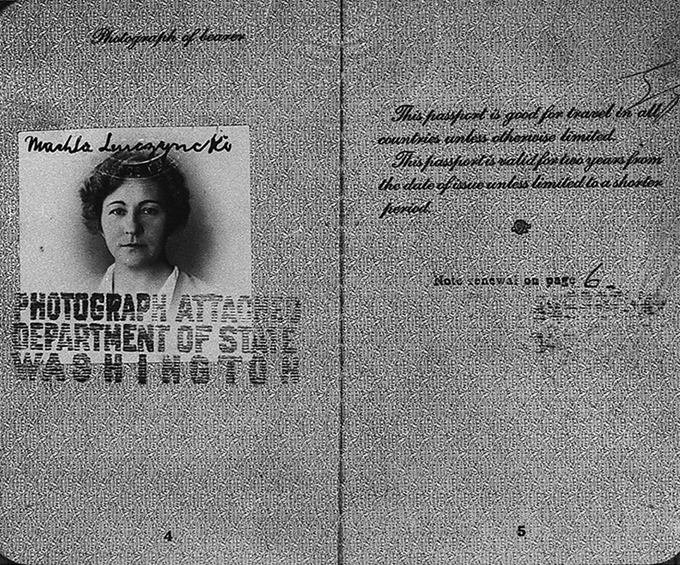 Photograph of bearer
PHOTOGRAPH ATTACHED
DEPARTMENT OF STATE
WASHINGTON
4
This passport is good for travel in all
countries unless otherwise limited.
This passport is valid for two years from
the date of issue unless limited to a shorter
period.
Note renewal on page 6
5